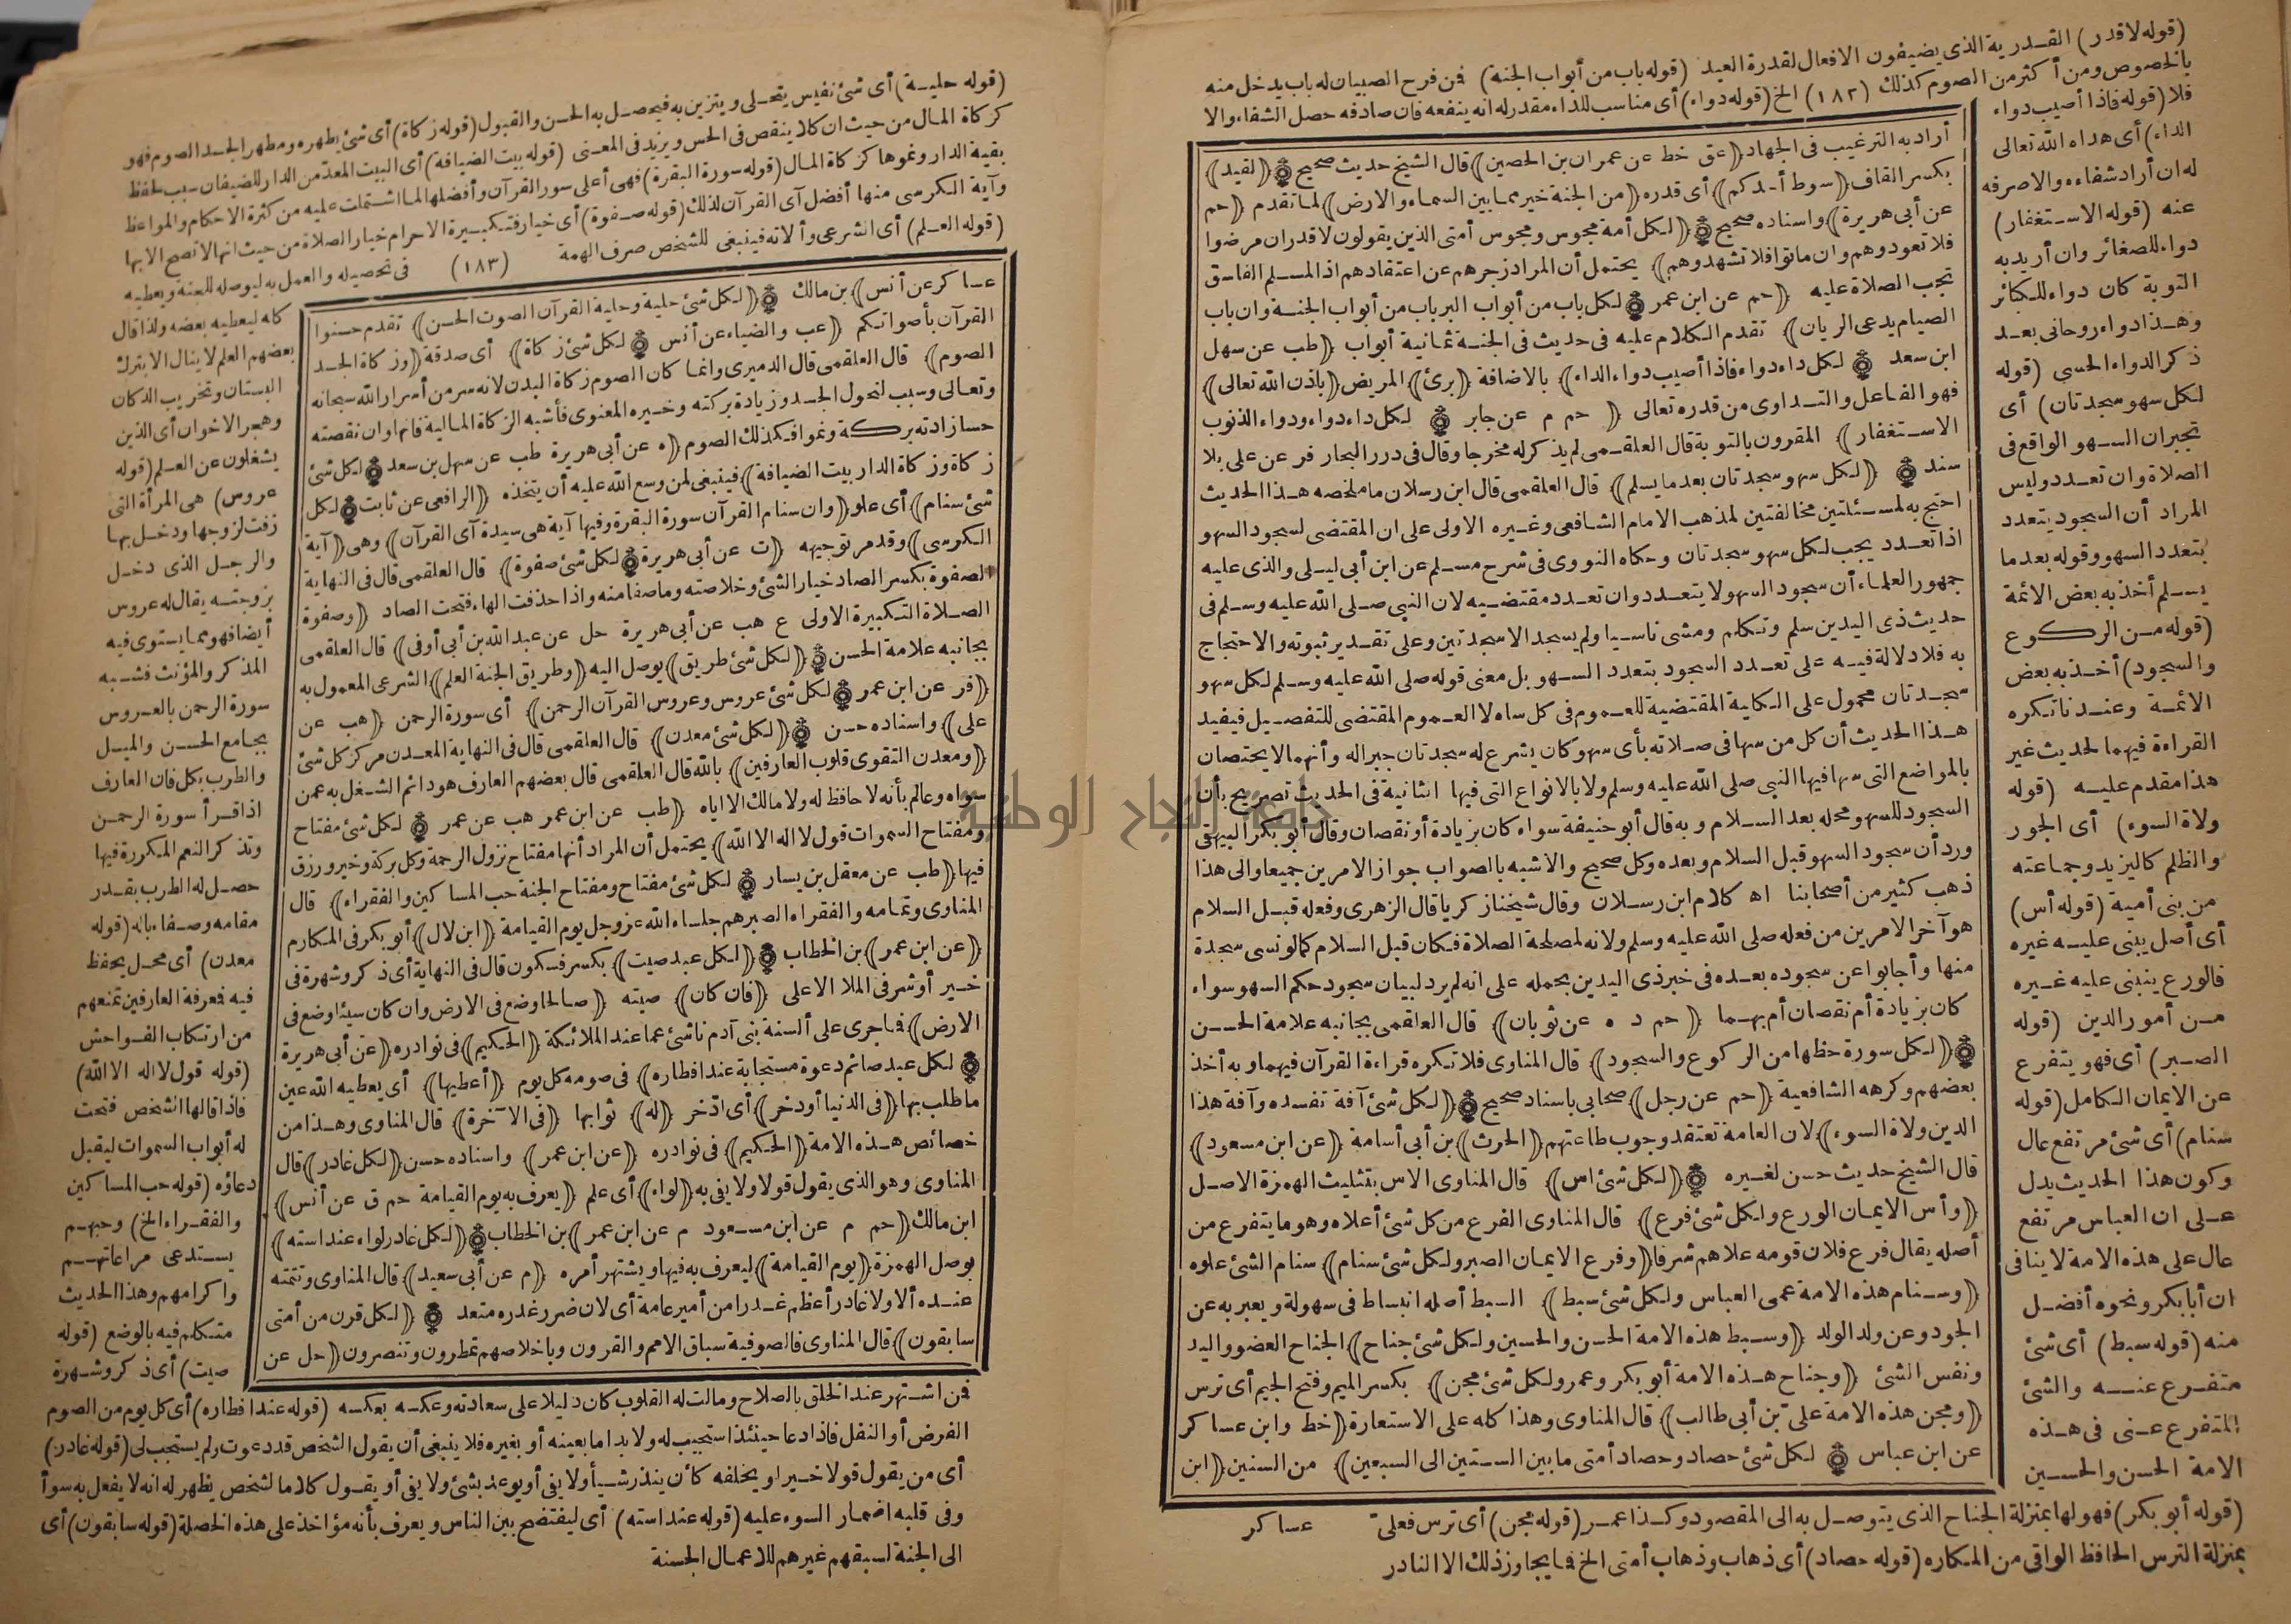 (قوله لاقدر) القدرية الذى يضيفون الافعال لقدرة العبد (قوله باب من أبواب الجنة) فن فرح الصبيان له باب يدخل منه
بالخصوص ومن أكثر من الصوم كذلك (١٨٢) الخ (قوله دواء) أى مناسب للداء مقدر له انه ينفعه فان صادفه حصل الشفاء والا
فلا (قوله فاذا أصيب دواء
الداء) أى هداه الله تعالى
له ان أراد شفاءه والاصرفه
عنه (قوله الاستغفار)
دواء للصغائر وان أريد به
التوبة كان دواء للكبائر
وهذا دواء روحانى بعد
ذكر الدواء الحسى (قوله
لكل سهو سجدتان) أى
تجبران السهو الواقع فى
الصلاة وان تعدد وليس
المراد أن السجود يتعدد
بتعدد السهو وقوله بعد ما
يسلم أخذ به بعض الائمة
(قوله من الركوع
والسجود) أخذ به بعض
الائمة وعندنا تكره
القراءة فيهما لحديث غير
هذا مقدم عليه (قوله
ولاة السوء) أى الجور
والظلم كاليزيد وجماعته
من بنى أمية (قوله أس)
أى أصل يبنى عليه غيره
فالورع ينبنى عليه غيره
من أمور الدين (قوله
الصبر) أى فهو يتفرع
عن الايمان الكامل (قوله
سنام) أى شئ مرتفع عال
وكون هذا الحديث يدل
على ان العباس مرتفع
عال على هذه الامة لا ينافى
ان أبا بكر ونحوه أفضل
منه (قوله سبط) أى شئ
متفرع عنه والشئ
المتفرع عنى فى هذه
الامة الحسن والحسين
أراد به الترغيب فى الجهاد (عق خط عن عمران بن الحصين) قال الشيخ حديث صحيح (لقيد)
بكسر القاف (سوط أحدكم) أى قدره (من الجنة خير مما بين السماء والارض) لما تقدم (حم
عن أبى هريرة) واسناده صحيح (لكل أمة مجوس ومجوس أمتى الذين يقولون لاقدر ان مرضوا
فلا تعودوهم وان ماتوا فلا تشهدوهم) يحتمل أن المراد زجرهم عن اعتقادهم اذ المسلم الفاسق
تجب الصلاة عليه (حم عن ابن عمر لكل باب من أبواب البر باب من أبواب الجنة وان باب
الصيام يدعى الريان) تقدم الكلام عليه فى حديث فى الجنة ثمانية أبواب (طب عن سهل
ابن سعد لكل داء دواء فاذا أصيب دواء الداء) بالاضافة (برئ) المريض (باذن الله تعالى)
فهو الفاعل والتداوى من قدره تعالى (حم م عن جابر لكل داء دواء ودواء الذنوب
الاستغفار) المقرون بالتوبة قال العلقمى لم يذكر له مخرجا وقال فى درر البحار فر عن على بلا
سند (لكل سهو سجدتان بعد ما يسلم) قال العلقمى قال ابن رسلان ما ملخصه هذا الحديث
احتج به لمسئلتين مخالفتين لمذهب الامام الشافعى وغيره الاولى على ان المقتضى لسجود السهو
اذا تعدد يجب لكل سهو سجدتان وحكاه النووى فى شرح مسلم عن ابن أبى ليلى والذى عليه
جمهور العلماء أن سجود السهو لا يتعدد وان تعدد مقتضيه لان النبى صلى الله عليه وسلم فى
حديث ذى اليدين سلم وتكلم ومشى ناسيا ولم يسجد الا سجدتين وعلى تقدير ثبوته والاحتجاج
به فلا دلالة فيه على تعدد السجود بتعدد السهو بل معنى قوله صلى الله عليه وسلم لكل سهو
سجدتان محمول على الكلية المقتضية للعموم فى كل ساه لا العموم المقتضى للتفصيل فيفيد
هذا الحديث أن كل من سها فى صلاته بأى سهو كان يشرع له سجدتان جبرا له وأنهما لا يختصان
بالمواضع التى سها فيها النبى صلى الله عليه وسلم ولا بالانواع التى فيها الثانية فى الحديث تصريح بأن
السجود للسهو محله بعد السلام وبه قال أبو حنيفة سواء كان بزيادة أو نقصان وقال أبو بكر البيهقى
ورد أن سجود السهو قبل السلام وبعده وكل صحيح والاشبه بالصواب جواز الامرين جميعا والى هذا
ذهب كثير من أصحابنا اه كلام ابن رسلان وقال شيخنا زكريا قال الزهرى وفعله قبل السلام
هو آخر الامرين من فعله صلى الله عليه وسلم ولانه لمصلحة الصلاة فكان قبل السلام كما لو نسى سجدة
منها وأجابوا عن سجوده بعده فى خبر ذى اليدين بحمله على انه لم يرد لبيان سجود حكم السهو سواء
كان بزيادة أم نقصان أم بهما (حم د ه عن ثوبان) قال العلقمى بجانبه علامة الحسن
(لكل سورة حظها من الركوع والسجود) قال المناوى فلا تكره قراءة القرآن فيهما وبه أخذ
بعضهم وكرهه الشافعية (حم عن رجل) صحابى باسناد صحيح (لكل شئ آفة تفسده وآفة هذا
الدين ولاة السوء) لان العامة تعتقد وجوب طاعتهم (الحرث) بن أبى أسامة (عن ابن مسعود)
قال الشيخ حديث حسن لغيره (لكل شئ اس) قال المناوى الاس بتثليث الهمزة الاصل
(وأس الايمان الورع ولكل شئ فرع) قال المناوى الفرع من كل شئ أعلاه وهو ما يتفرع من
أصله يقال فرع فلان قومه علاهم شرفا (وفرع الايمان الصبر ولكل شئ سنام) سنام الشئ علوه
(وسنام هذه الامة عمى العباس ولكل شئ سبط) السبط أصله انبساط فى سهولة ويعبر به عن
الجود وعن ولد الولد (وسبط هذه الامة الحسن والحسين ولكل شئ جناح) الجناح العضو واليد
ونفس الشئ (وجناح هذه الامة أبو بكر وعمر ولكل شئ مجن) بكسر الميم وفتح الجيم أى ترس
(ومجن هذه الامة على بن أبى طالب) قال المناوى وهذا كله على الاستعارة (خط وابن عساكر
عن ابن عباس لكل شئ حصاد وحصاد أمتى ما بين الستين الى السبعين) من السنين (ابن
(قوله أبو بكر) فهو لها بمنزلة الجناح الذى يتوصل به الى المقصود وكذا عمر (قوله مجن) أى ترس فعلى عساكر
بمنزلة الترس الحافظ الواقى من المكاره (قوله حصاد) أى ذهاب وذهاب أمتى الخ فما يجاوز ذلك الا النادر
(قوله حلية) أى شئ نفيس يتحلى ويتزين به فيحصل به الحسن والقبول (قوله زكاة) أى شئ يطهره ومطهر الجسد الصوم فهو
كزكاة المال من حيث ان كلا ينقص فى الحس ويزيد فى المعنى (قوله بيت الضيافة) أى البيت المعد من الدار للضيفان سبب لحفظ
بقية الدار ونموها كزكاة المال (قوله سورة البقرة) فهى أعلى سور القرآن وأفضلها لما اشتملت عليه من كثرة الاحكام والمواعظ
وآية الكرسى منها أفضل آى القرآن لذلك (قوله صفوة) أى خيار فتكبيرة الاحرام خيار الصلاة من حيث انها لا تصح الا بها
(قوله العلم) أى الشرعى وآلاته فينبغى للشخص صرف الهمة (١٨٣) فى تحصيله والعمل به ليوصله للجنة ويعطيه
كله ليعطيه بعضه ولذا قال
بعضهم العلم لا ينال الا بترك
البستان وتخريب الدكان
وهجر الاخوان أى الذين
يشغلون عن العلم (قوله
عروس) هى المرأة التى
زفت لزوجها ودخل بها
والرجل الذى دخل
بزوجته يقال له عروس
أيضا فهو مما يستوى فيه
المذكر والمؤنث فشبه
سورة الرحمن بالعروس
بجامع الحسن والميل
والطرب بكل فان العارف
اذا قرأ سورة الرحمن
وتذكر النعم المكررة فيها
حصل له الطرب بقدر
مقامه وصفاء باله (قوله
معدن) أى محل يحفظ
فيه فمعرفة العارفين تمنعهم
من ارتكاب الفواحش
(قوله قول لا اله الا الله)
فاذا قالها الشخص فتحت
له أبواب السموات ليقبل
دعاؤه (قوله حب المساكين
والفقراء الخ) وحبهم
يستدعى مراعاتهم
واكرامهم وهذا الحديث
متكلم فيه بالوضع (قوله
صيت) أى ذكر وشهرة
عساكر عن أنس) بن مالك (لكل شئ حلية وحلية القرآن الصوت الحسن) تقدم حسنوا
القرآن بأصواتكم (عب والضياء عن أنس لكل شئ زكاة) أى صدقة (وزكاة الجسد
الصوم) قال العلقمى قال الدميرى وانما كان الصوم زكاة البدن لانه سر من أسرار الله سبحانه
وتعالى وسبب لنحول الجسد وزيادة بركته وخيره المعنوى فأشبه الزكاة المالية فانها وان نقصته
حسا زادته بركة ونموا فكذلك الصوم (ه عن أبى هريرة طب عن سهل بن سعد لكل شئ
زكاة وزكاة الدار بيت الضيافة) فينبغى لمن وسع الله عليه أن يتخذه (الرافعى عن ثابت لكل
شئ سنام) أى علو (وان سنام القرآن سورة البقرة وفيها آية هى سيدة آى القرآن) وهى (آية
الكرسى) وقد مر توجيهه (ت عن أبى هريرة لكل شئ صفوة) قال العلقمى قال فى النهاية
الصفوة بكسر الصاد خيار الشئ وخلاصته وما صفا منه واذا حذفت الهاء فتحت الصاد (وصفوة
الصلاة التكبيرة الاولى ع هب عن أبى هريرة حل عن عبد الله بن أبى أوفى) قال العلقمى
بجانبه علامة الحسن (لكل شئ طريق) يوصل اليه (وطريق الجنة العلم) الشرعى المعمول به
(فر عن ابن عمر لكل شئ عروس وعروس القرآن الرحمن) أى سورة الرحمن (هب عن
على) واسناده حسن (لكل شئ معدن) قال العلقمى قال فى النهاية المعدن مركز كل شئ
(ومعدن التقوى قلوب العارفين) بالله قال العلقمى قال بعضهم العارف هو دائم الشغل به عمن
سواه وعالم بأنه لا حافظ له ولا مالك الا اياه (طب عن ابن عمر هب عن عمر لكل شئ مفتاح
ومفتاح السموات قول لا اله الا الله) يحتمل أن المراد أنها مفتاح نزول الرحمة وكل بركة وخير ورزق
فيها (طب عن معقل بن يسار لكل شئ مفتاح ومفتاح الجنة حب المساكين والفقراء) قال
المناوى وتمامه والفقراء الصبر هم جلساء الله عز وجل يوم القيامة (ابن لال) أبو بكر فى المكارم
(عن ابن عمر) بن الخطاب (لكل عبد صيت) بكسر فسكون قال فى النهاية أى ذكر وشهرة فى
خير أو شر فى الملا الاعلى (فان كان) صيته (صالحا وضع فى الارض وان كان سيئا وضع فى
الارض) فما جرى على ألسنة بنى آدم ناشئ عما عند الملائكة (الحكيم) فى نوادره (عن أبى هريرة
لكل عبد صائم دعوة مستجابة عند افطاره) فى صومه كل يوم (أعطيها) أى يعطيه الله عين
ما طلب بها (فى الدنيا أو دخر) أى ادّخر (له) ثوابها (فى الآخرة) قال المناوى وهذا من
خصائص هذه الامة (الحكيم) فى نوادره (عن ابن عمر) واسناده حسن (لكل غادر) قال
المناوى وهو الذى يقول قولا ولا يفى به (لواء) أى علم (يعرف به يوم القيامة حم ق عن أنس)
ابن مالك (حم م عن ابن مسعود م عن ابن عمر) بن الخطاب (لكل غادر لواء عند استه)
بوصل الهمزة (يوم القيامة) ليعرف به فيها ويشتهر أمره (م عن أبى سعيد) قال المناوى وتتمته
عنده ألا ولا غادر أعظم غدرا من أمير عامة أى لان ضرر غدره متعد (لكل قرن من أمتى
سابقون) قال المناوى فالصوفية سباق الامم والقرون وباخلاصهم تمطرون وتنصرون (حل عن
فن اشتهر عند الخلق بالصلاح ومالت له القلوب كان دليلا على سعادته وعكسه بعكسه (قوله عند افطاره) أى كل يوم من الصوم
الفرض أو النفل فاذا دعا حينئذ استجيب له ولا بد اما بعينه أو بغيره فلا ينبغى أن يقول الشخص قد دعوت ولم يستجب لى (قوله غادر)
أى من يقول قولا خيرا ويخلفه كأن ينذر شيأ ولا يفى أو يوعد بشئ ولا يفى أو يقول كلاما لشخص يظهر له انه لا يفعل به سوأ
وفى قلبه اضمار السوء عليه (قوله عند استه) أى ليفتضح بين الناس ويعرف بأنه مؤاخذ على هذه الخصلة (قوله سابقون) أى
الى الجنة لسبقهم غيرهم للاعمال الحسنة
جامعة النجاح الوطنية